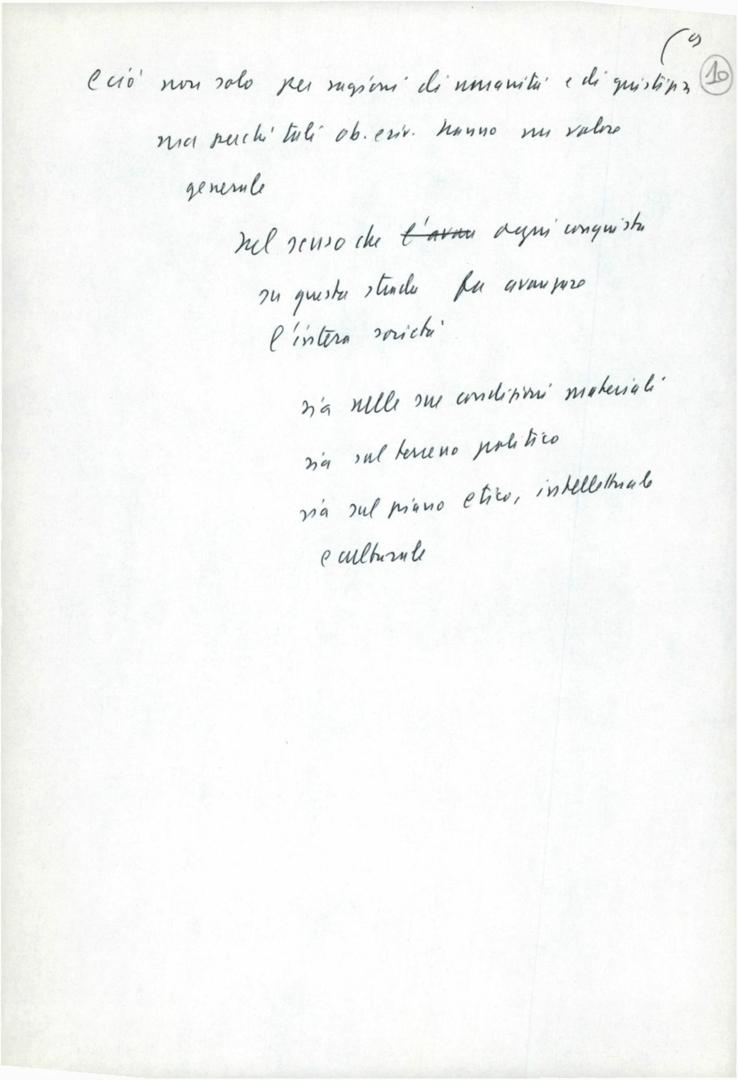 10
e ciò non solo per ragioni di umanità e di giustizia
ma perché tali ob. e riv. hanno un valore
generale
nel senso che l'avan ogni conquista
su questa strada fa avanzare
l'intera società
sia nelle sue condizioni materiali
sia sul terreno politico
sia sul piano etico, intellettuale
e culturale